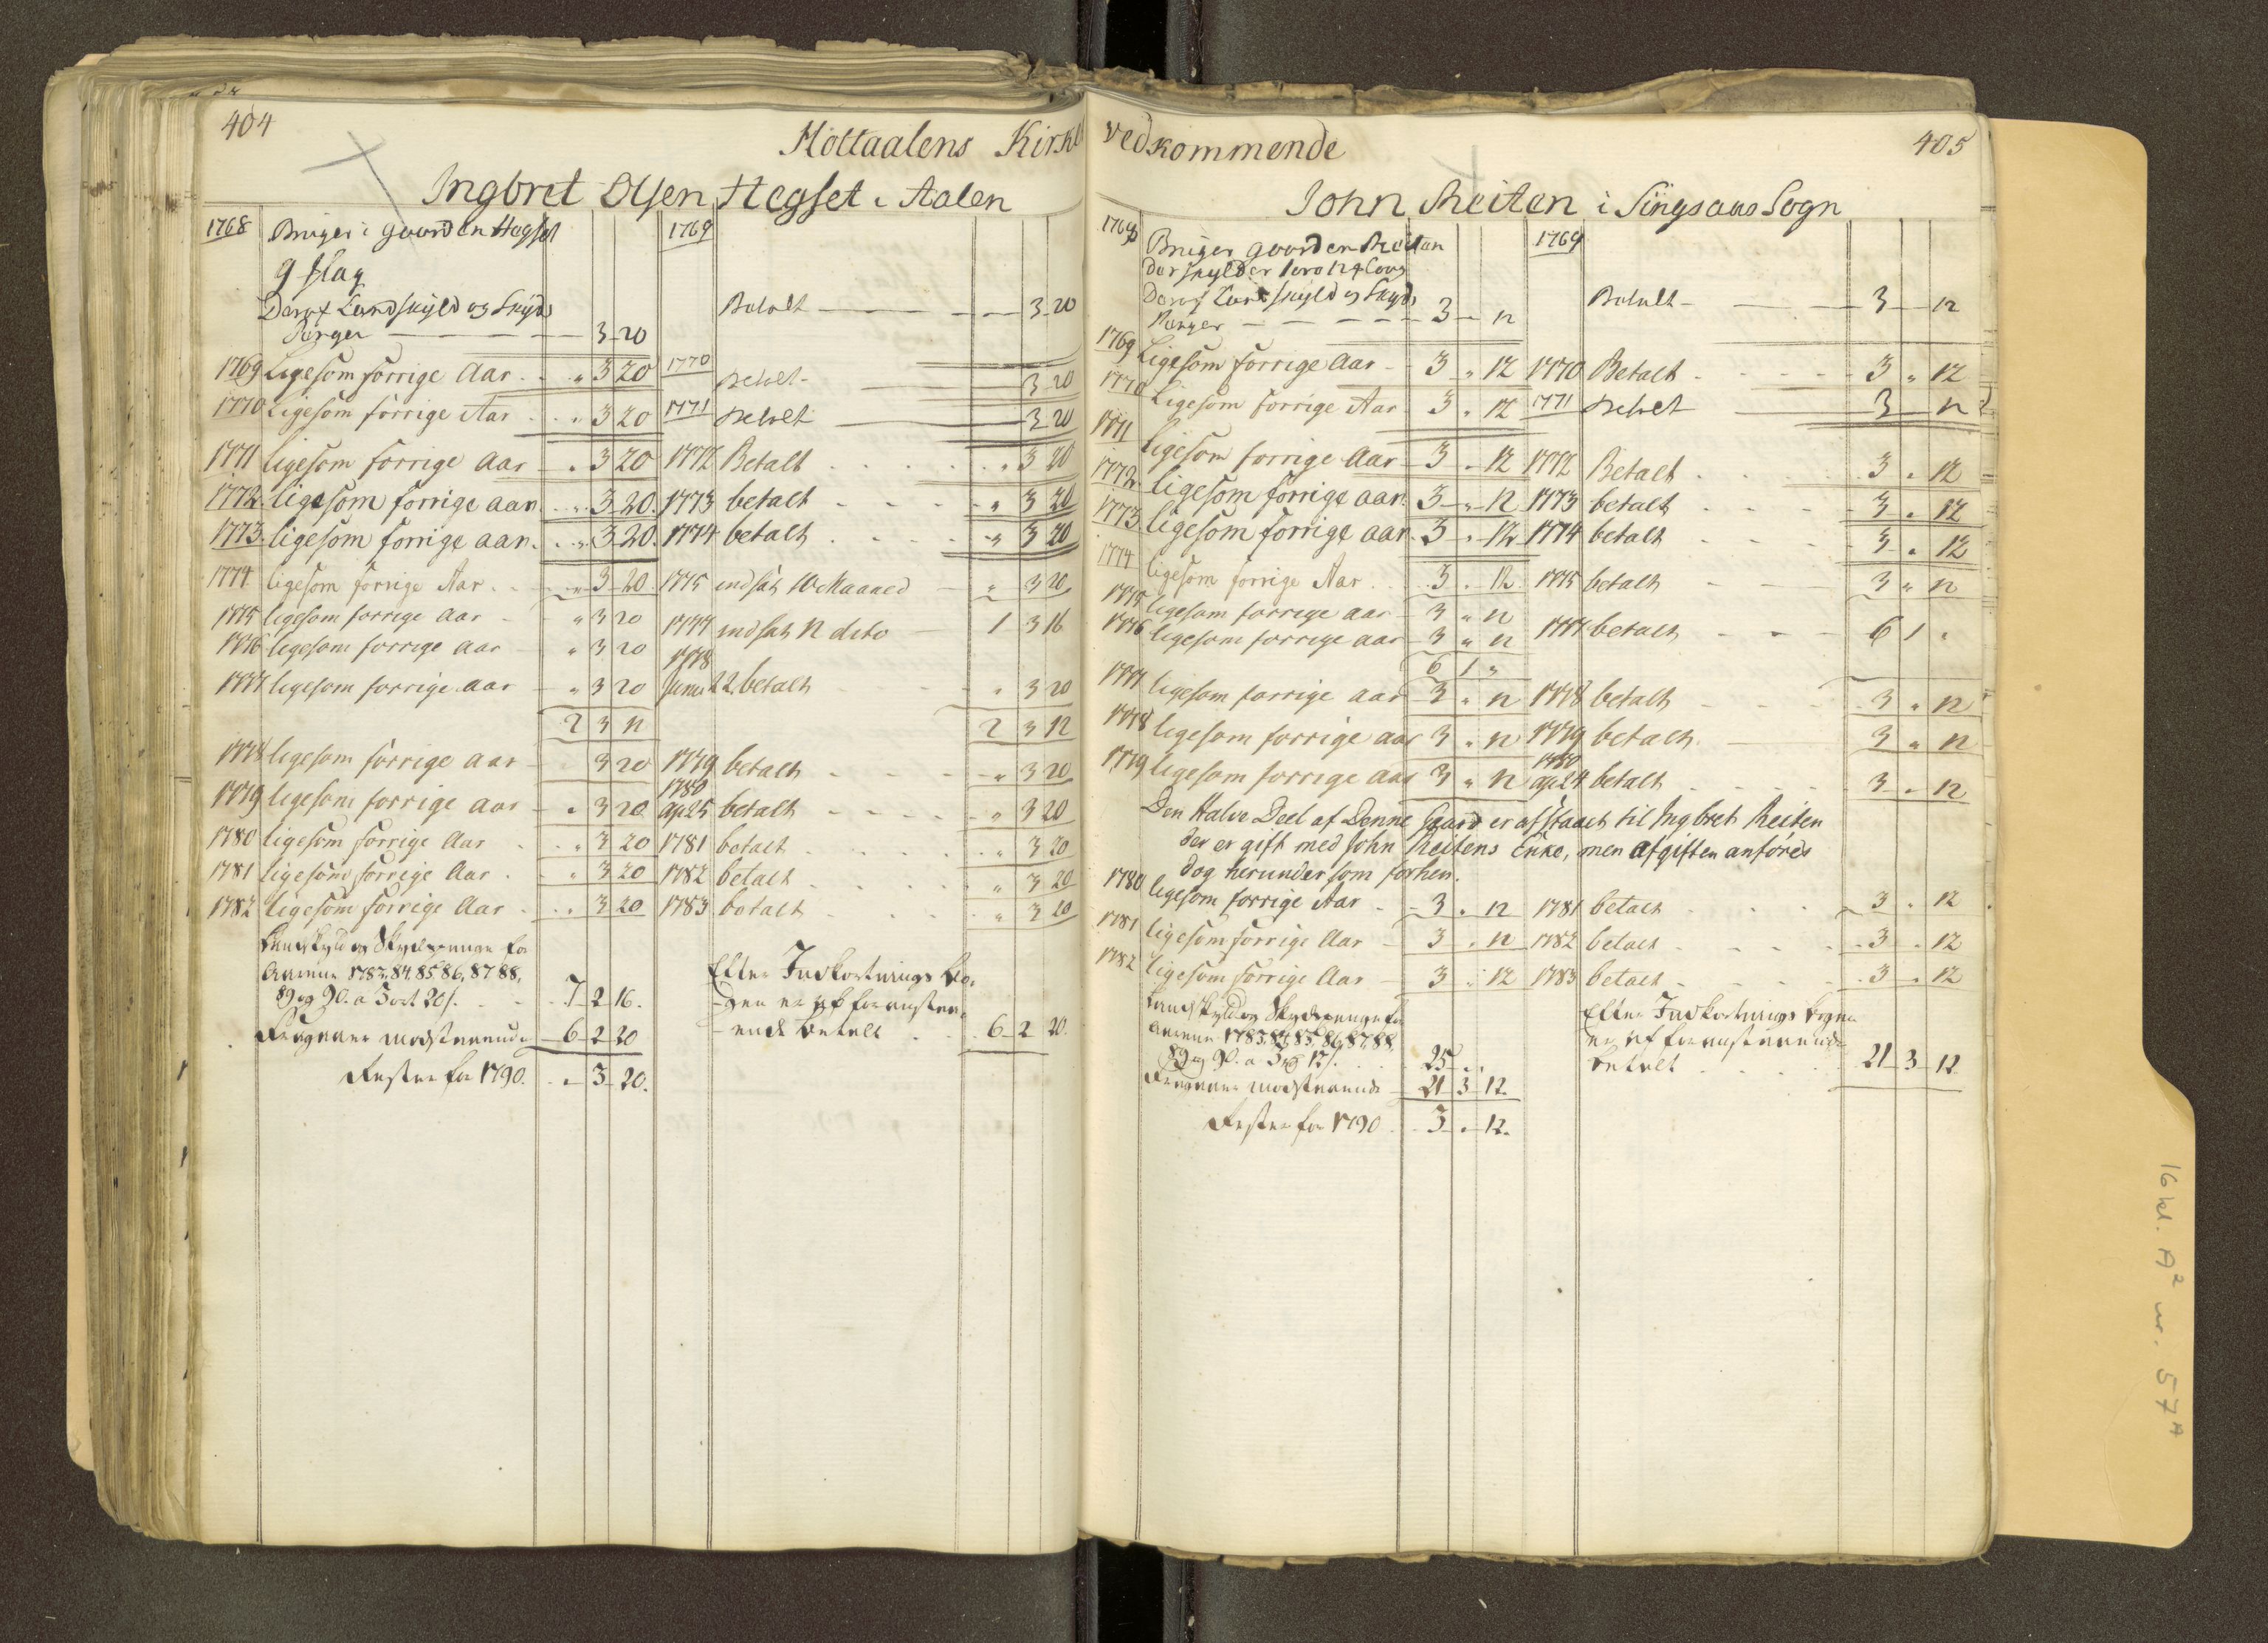 404
Holtaalens Kirke
Ingbret Olsen Hegset i Aalen
1768 Bruger i gaarden Hegset 1769
9 slag
Deraf Landskyld og Skyds Betalt — 3 20
Penger — 3 20
1769 Ligesom forrige Aar . " 3 20 1770 Betalt — 3 20
1770 Ligesom forrige Aar . " 3 20 1771 Betalt — 3 20
1771 ligesom forrige Aar " 3 20 1772 Betalt . . . " 3 20
1772. ligesom forrige aar. " 3 20. 1773 betalt - - - " 3 20
1773. ligesom forrige aar. " 3 20. 1774 betalt . . . " 3 20
1774 ligesom forrige Aar . . " 3 20. 1775 indsat 10 Maaned " 3 20
1775 ligesom forrige aar - " 3 20 1777 indsat 12 dito — 1 3 16
1776 ligesom forrige aar - " 3 20 1778
1777 ligesom forrige aar - " 3 20 Juni 22 betalt " 3 20
2 3 12 2 3 12
1778 ligesom forrige aar - 3 20 1779 betalt . . . " 3 20
1779 ligesom forrige aar - " 3 20 1780 ap 25 betalt . . . " 3 20
1780 ligesom forrige Aar . . " 3 20 1781 betalt . . . " 3 20
1781 ligesom forrige Aar . " 3 20 1782 betalt . . . " 3 20
1782 ligesom forrige Aar . . " 3 20 1783 betalt . . . " 3 20
Landskyld og Skydspenge for
Aarene 1783, 84, 85, 86, 87, 88,
89 og 90. a 3 ort 20 s. . - 7 2 16.
Fragaaer modstaaende 6 2 20
Efter Indkortnings Bo-
gen er af foranstaa-
ende betalt . . 6 2 20.
Rester for 1790. . " 3 20.
vedkommende
405
John Reiten i Singsaas Sogn
1768 Bruger gaarden Reiten 1769
der skylder
Deraf Landskyld og Skyds Betalt — 3 — 12
Penger — 3 — 12
1769 Ligesom forrige Aar - 3 " 12 1770 Betalt - - - 3 " 12
1770 Ligesom forrige Aar 3 " 12 1771 Betalt — 3 — 12
1771 ligesom forrige Aar 3 " 12 1772 Betalt . . 3 " 12
1772. ligesom forrige aar. 3 " 12 1773 betalt - - - 3 " 12
1773 ligesom forrige aar. 3 " 12 1774 betalt . . . 3 " 12
1774 ligesom forrige Aar . 3 " 12. 1775 betalt - - 3 " 12
1775 ligesom forrige aar 3 " 12
1776 ligesom forrige aar 3 " 12 1777 betalt - - - 6 1 "
6 1 "
1777 ligesom forrige aar 3 " 12 1778 betalt - - 3 " 12
1778 ligesom forrige aar 3 " 12 1779 betalt — 3 " 12
1779 ligesom forrige aar 3 " 12 1780 ap 24 betalt . . . 3 " 12
Den Halve Deel af Denne Gaard er afstaaet til Ingbret Reiten
der er gift med John Reitens Enke, men afgiften anføres
dog herunder som forhen.
1780 ligesom forrige Aar . 3 " 12 1781 betalt . . . 3 " 12
1781 ligesom forrige Aar 3 " 12 1782 betalt . . . 3 " 12
1782 ligesom forrige Aar 3 " 12 1783 betalt . . . 3 " 12
Landskyld og Skydspenge for
Aarene 1783, 84, 85, 86, 87, 88,
89 og 90. a 3 rd 12 s. . . 25 " "
Fragaaer modstaaende 21 3 12.
Efter Indkortnings bogen
er af foranstaaende
betalt . . . 21 3 12
Rester for 1790 . . 3 " 12.
16 kl. A² nr. 57ᴬ